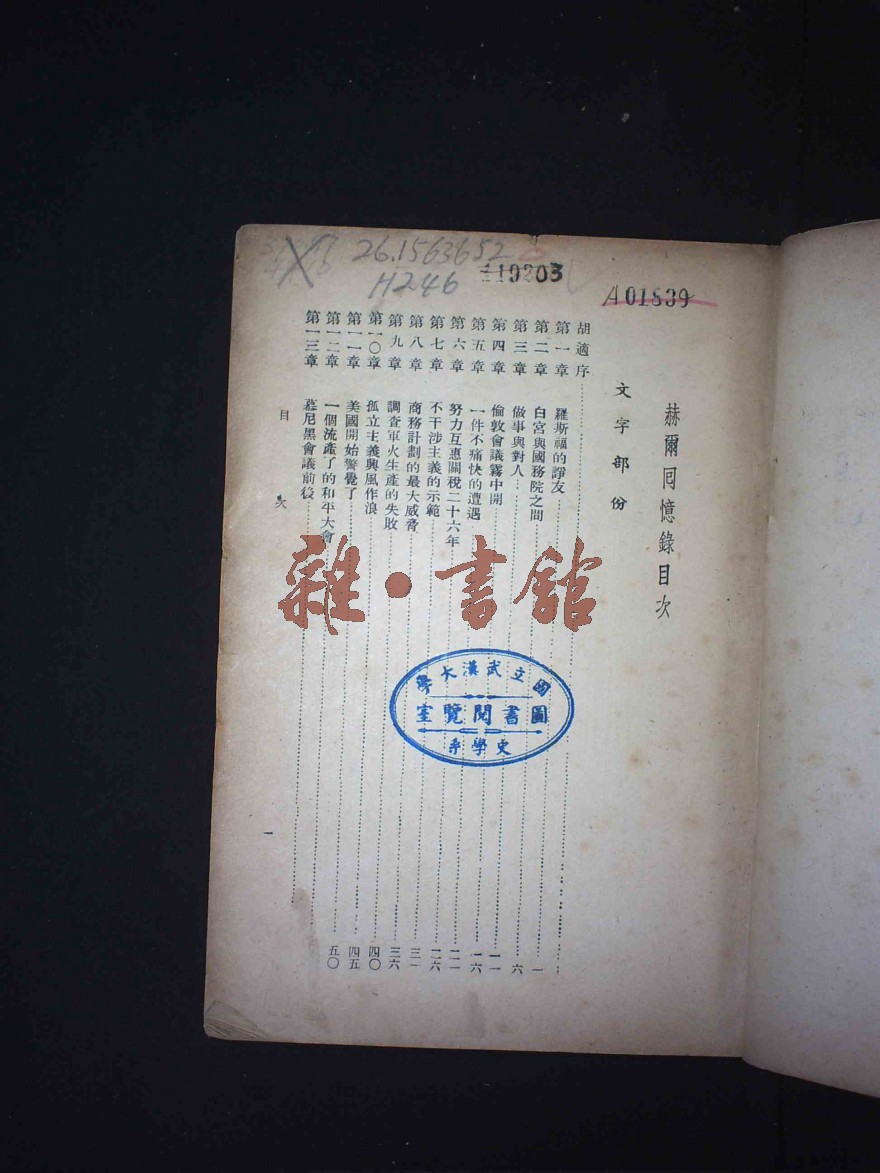 26.1563652
H246
110203
A01539
赫爾囘憶錄目次
文字部份
胡適序
第一章 羅斯福的諍友 一
第二章 白宮與國務院之間 六
第三章 做事與對人 一一
第四章 倫敦會議霧中開 一六
第五章 一件不痛快的遭遇 二一
第六章 努力互惠關稅二十六年 二六
第七章 不干涉主義的示範 三一
第八章 商務計劃的最大威脅 三六
第九章 調查軍火生產的失敗 四〇
第一〇章 孤立主義興風作浪 四五
第一一章 美國開始警覺了 五〇
第一二章 一個流產了的和平大會
第一三章 慕尼黑會議前後
目次
一
雜·書館
國立武漢大學
圖書閱覽室
史學系